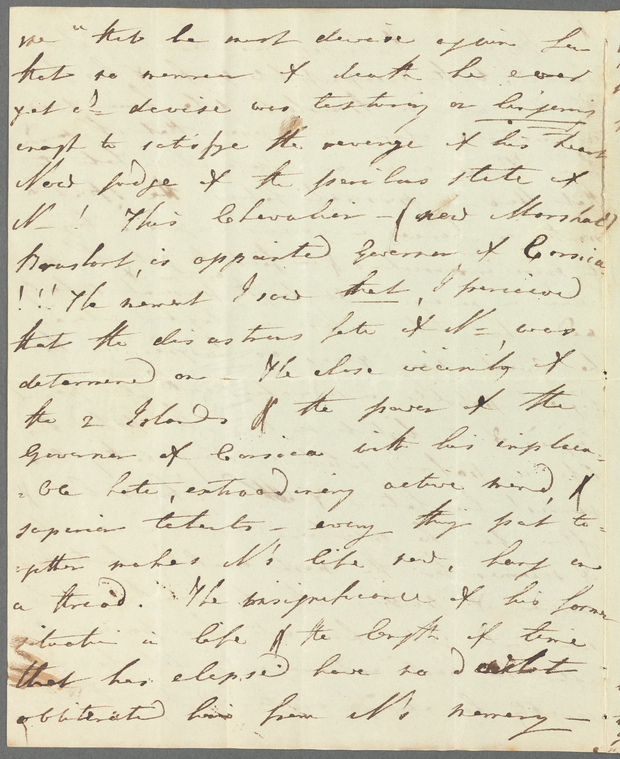 me "that he must devise again for
that no manner of death he ever
yet cd= devise was torturing or
enogh to satisfye the revenge of his heart
Now judge of the perilus state of
N—! This Chevalier — (now Marshal)
is appointed Governer of Corsica
!!! The moment I saw that, I perceived
that the disastrous fate of N=, was
determined on — The close vicinity of
the 2 Islands & the power of the
Governer of Corsica with his implica-
-ble hate, extraordinary active mind, &
superior talents — every thing put to-
-gether makes N's life now, hang on
a thread. The insignificance of his former
situation in life & the length of time
that has elapsed have no doubt
obliterated him from N's memory —